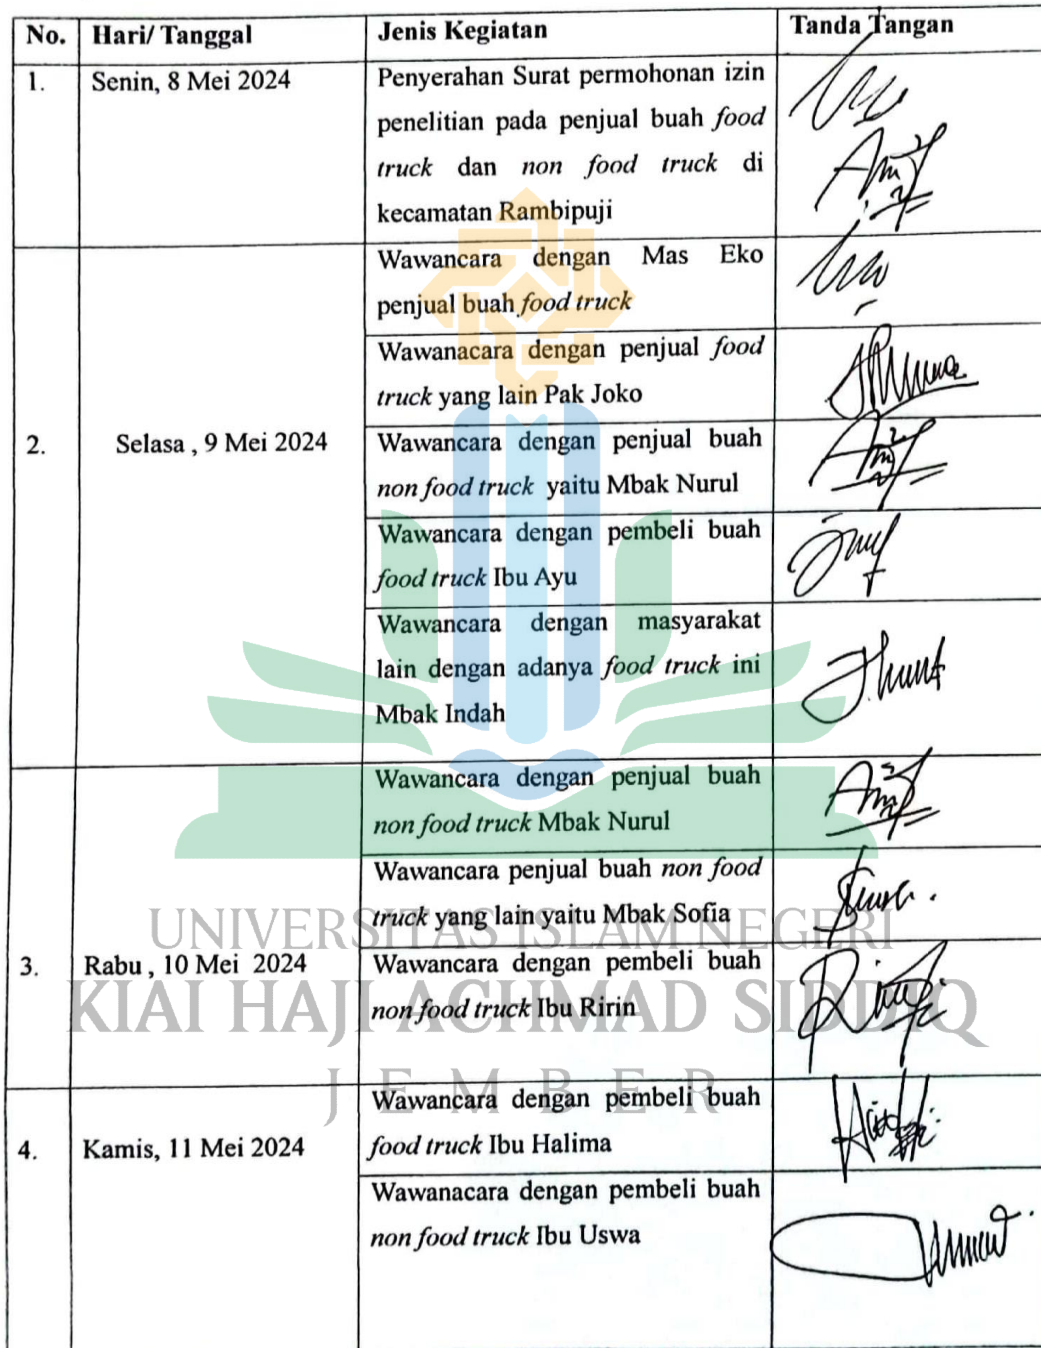 No. Hari/ Tanggal Jenis Kegiatan Tanda Tangan
1. Senin, 8 Mei 2024 Penyerahan Surat permohonan izin
penelitian pada penjual buah food
truck dan non food truck di
kecamatan Rambipuji
2. Selasa , 9 Mei 2024
Wawancara dengan Mas Eko
penjual buah food truck
Wawanacara dengan penjual food
truck yang lain Pak Joko
Wawancara dengan penjual buah
non food truck yaitu Mbak Nurul
Wawancara dengan pembeli buah
food truck Ibu Ayu
Wawancara dengan masyarakat
lain dengan adanya food truck ini
Mbak Indah
3. Rabu , 10 Mei 2024
Wawancara dengan penjual buah
non food truck Mbak Nurul
Wawancara penjual buah non food
truck yang lain yaitu Mbak Sofia
Wawancara dengan pembeli buah
non food truck Ibu Ririn
4. Kamis, 11 Mei 2024
Wawancara dengan pembeli buah
food truck Ibu Halima
Wawanacara dengan pembeli buah
non food truck Ibu Uswa
UNIVERSITAS ISLAM NEGERI
KIAI HAJI ACHMAD SIDDIQ
JEMBER